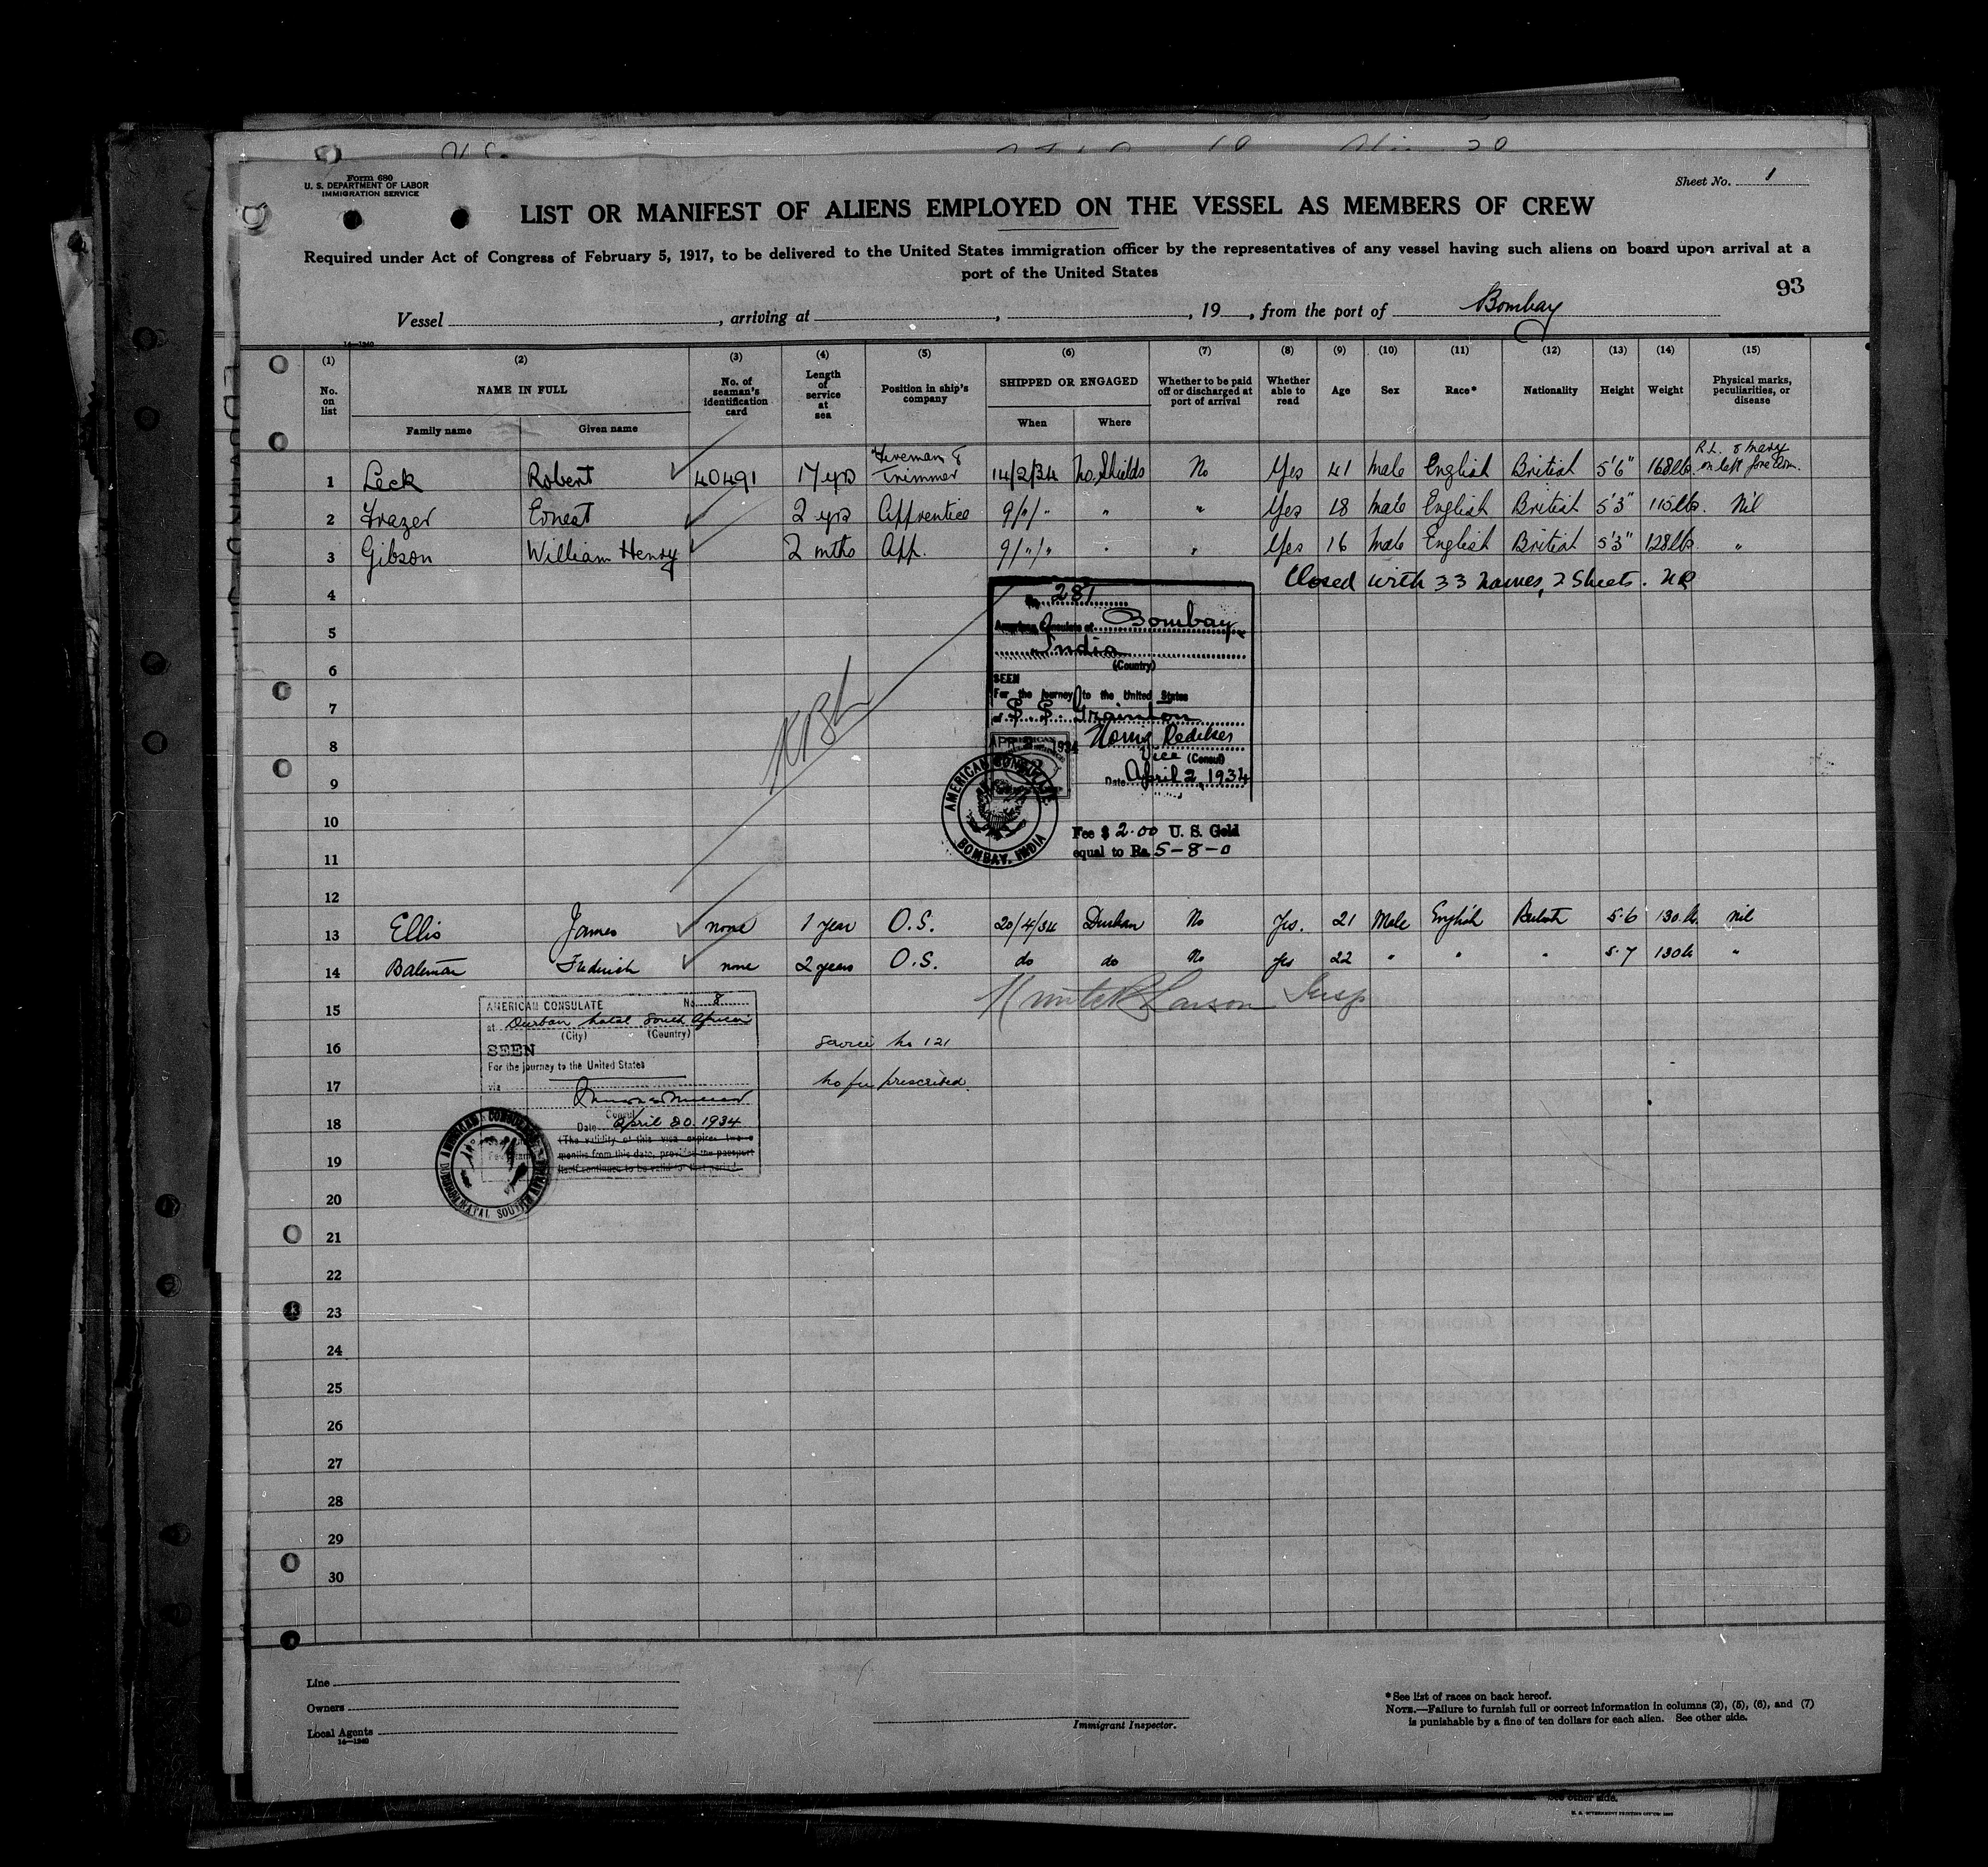 Form 680
U. S. DEPARTMENT OF LABOR
IMMIGRATION SERVICE
Sheet No. 1
LIST OR MANIFEST OF ALIENS EMPLOYED ON THE VESSEL AS MEMBERS OF CREW
Required under Act of Congress of February 5, 1917, to be delivered to the United States immigration officer by the representatives of any vessel having such aliens on board upon arrival at a
port of the United States
93
Vessel , arriving at , , 19 , from the port of Bombay
14—1240
(1) (2) (3) (4) (5) (6) (7) (8) (9) (10) (11) (12) (13) (14) (15)
No. on list NAME IN FULL Family name Given name No. of seaman's identification card Length of service at sea Position in ship's company SHIPPED OR ENGAGED When Where Whether to be paid off or discharged at port of arrival Whether able to read Age Sex Race* Nationality Height Weight Physical marks, peculiarities, or disease
1 Leck Robert 40491 17 yrs Fireman & Trimmer 14/2/34 No. Shields No Yes 41 Male English British 5'6" 168lbs. R.L. & Mary on left fore Arm.
2 Frazer Ernest 2 yrs Apprentice 9/"/" " " Yes 18 Male English British 5'3" 115lbs. Nil
3 Gibson William Henry 2 mths App. 9/"/" " " Yes 16 Male English British 5'3" 128lbs. "
Closed with 33 names, 2 Sheets. NR
4
No. 281
5
American Consulate at Bombay
India
(Country)
6
SEEN
For the journey to the United States
7
of S. S. Frainton
8
APR 1934
Vice (Consul)
9
Date April 2, 1934
AMERICAN CONSULATE
BOMBAY, INDIA
10
Fee $ 2.00 U. S. Gold
equal to Rs. 5-8-0
11
12
13 Ellis James none 1 year O.S. 20/4/34 Durban No Yes. 21 Male English British 5.6 130 lb. nil
14 Bateman Frederick none 2 years O.S. do do No yes 22 " " " 5.7 130 lb "
15
Larson Insp
AMERICAN CONSULATE No. 8
at Durban Natal South Africa
(City) (Country)
16
SEEN
Service No 121
For the journey to the United States
17
via
No fee prescribed.
Consul
18
Date April 20. 1934
(The validity of this visa expires twelve
19
months from this date, provided the passport
itself continues to be valid for that period.
AMERICAN CONSULATE
20
21
22
23
24
25
26
27
28
29
30
Line
Owners
Local Agents
14—1240
Immigrant Inspector.
*See list of races on back hereof.
NOTE.—Failure to furnish full or correct information in columns (2), (5), (6), and (7)
is punishable by a fine of ten dollars for each alien. See other side.
See other side.